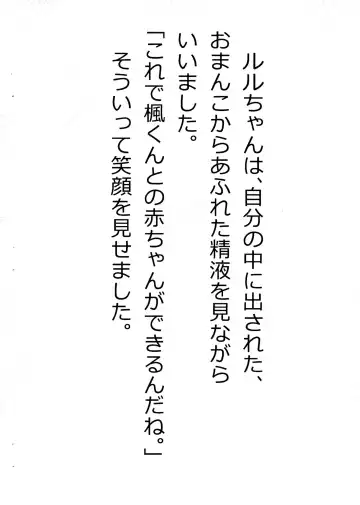 ルルちゃんは、自分の中に出された、
おまんこからあふれた精液を見ながら
いいました。
「これで楓くんとの赤ちゃんができるんだね。」
そういって笑顔を見せました。